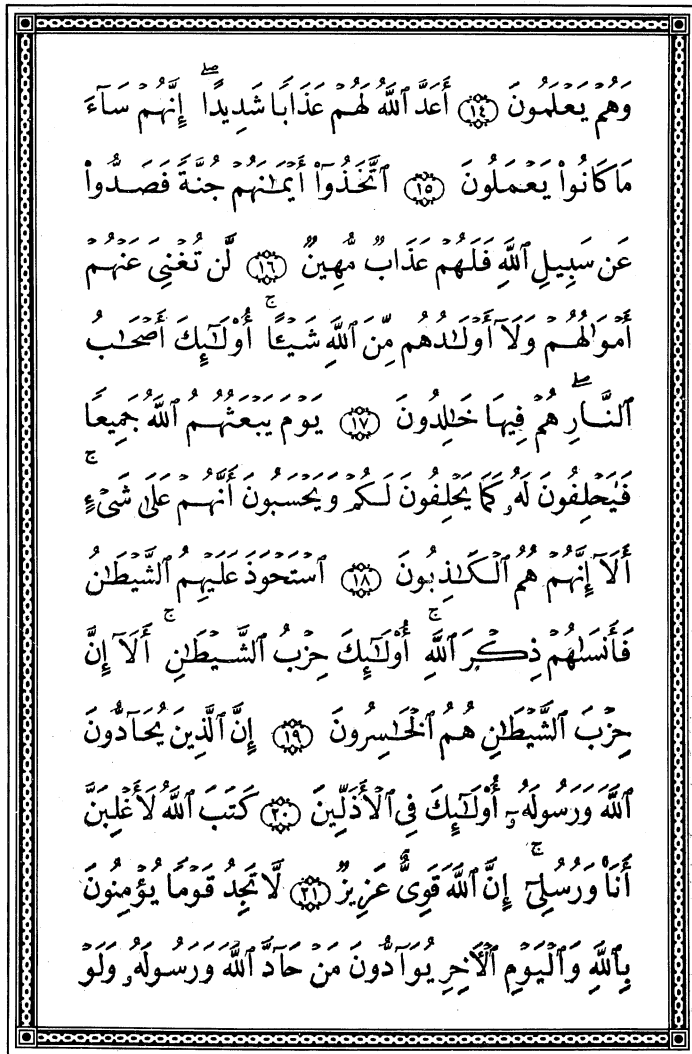 وَهُمْ يَعْلَمُونَ ﴿١٤﴾ أَعَدَّ ٱللَّهُ لَهُمْ عَذَابًا شَدِيدًا ۖ إِنَّهُمْ سَآءَ
مَا كَانُوا۟ يَعْمَلُونَ ﴿١٥﴾ ٱتَّخَذُوٓا۟ أَيْمَٰنَهُمْ جُنَّةً فَصَدُّوا۟
عَن سَبِيلِ ٱللَّهِ فَلَهُمْ عَذَابٌ مُّهِينٌ ﴿١٦﴾ لَّن تُغْنِىَ عَنْهُمْ
أَمْوَٰلُهُمْ وَلَآ أَوْلَٰدُهُم مِّنَ ٱللَّهِ شَيْـًٔا ۚ أُو۟لَٰٓئِكَ أَصْحَٰبُ
ٱلنَّارِ ۖ هُمْ فِيهَا خَٰلِدُونَ ﴿١٧﴾ يَوْمَ يَبْعَثُهُمُ ٱللَّهُ جَمِيعًا
فَيَحْلِفُونَ لَهُۥ كَمَا يَحْلِفُونَ لَكُمْ وَيَحْسَبُونَ أَنَّهُمْ عَلَىٰ شَىْءٍ ۚ
أَلَآ إِنَّهُمْ هُمُ ٱلْكَٰذِبُونَ ﴿١٨﴾ ٱسْتَحْوَذَ عَلَيْهِمُ ٱلشَّيْطَٰنُ
فَأَنسَىٰهُمْ ذِكْرَ ٱللَّهِ ۚ أُو۟لَٰٓئِكَ حِزْبُ ٱلشَّيْطَٰنِ ۚ أَلَآ إِنَّ
حِزْبَ ٱلشَّيْطَٰنِ هُمُ ٱلْخَٰسِرُونَ ﴿١٩﴾ إِنَّ ٱلَّذِينَ يُحَآدُّونَ
ٱللَّهَ وَرَسُولَهُۥٓ أُو۟لَٰٓئِكَ فِى ٱلْأَذَلِّينَ ﴿٢٠﴾ كَتَبَ ٱللَّهُ لَأَغْلِبَنَّ
أَنَا۠ وَرُسُلِىٓ ۚ إِنَّ ٱللَّهَ قَوِىٌّ عَزِيزٌ ﴿٢١﴾ لَّا تَجِدُ قَوْمًا يُؤْمِنُونَ
بِٱللَّهِ وَٱلْيَوْمِ ٱلْءَاخِرِ يُوَآدُّونَ مَنْ حَآدَّ ٱللَّهَ وَرَسُولَهُۥ وَلَوْ